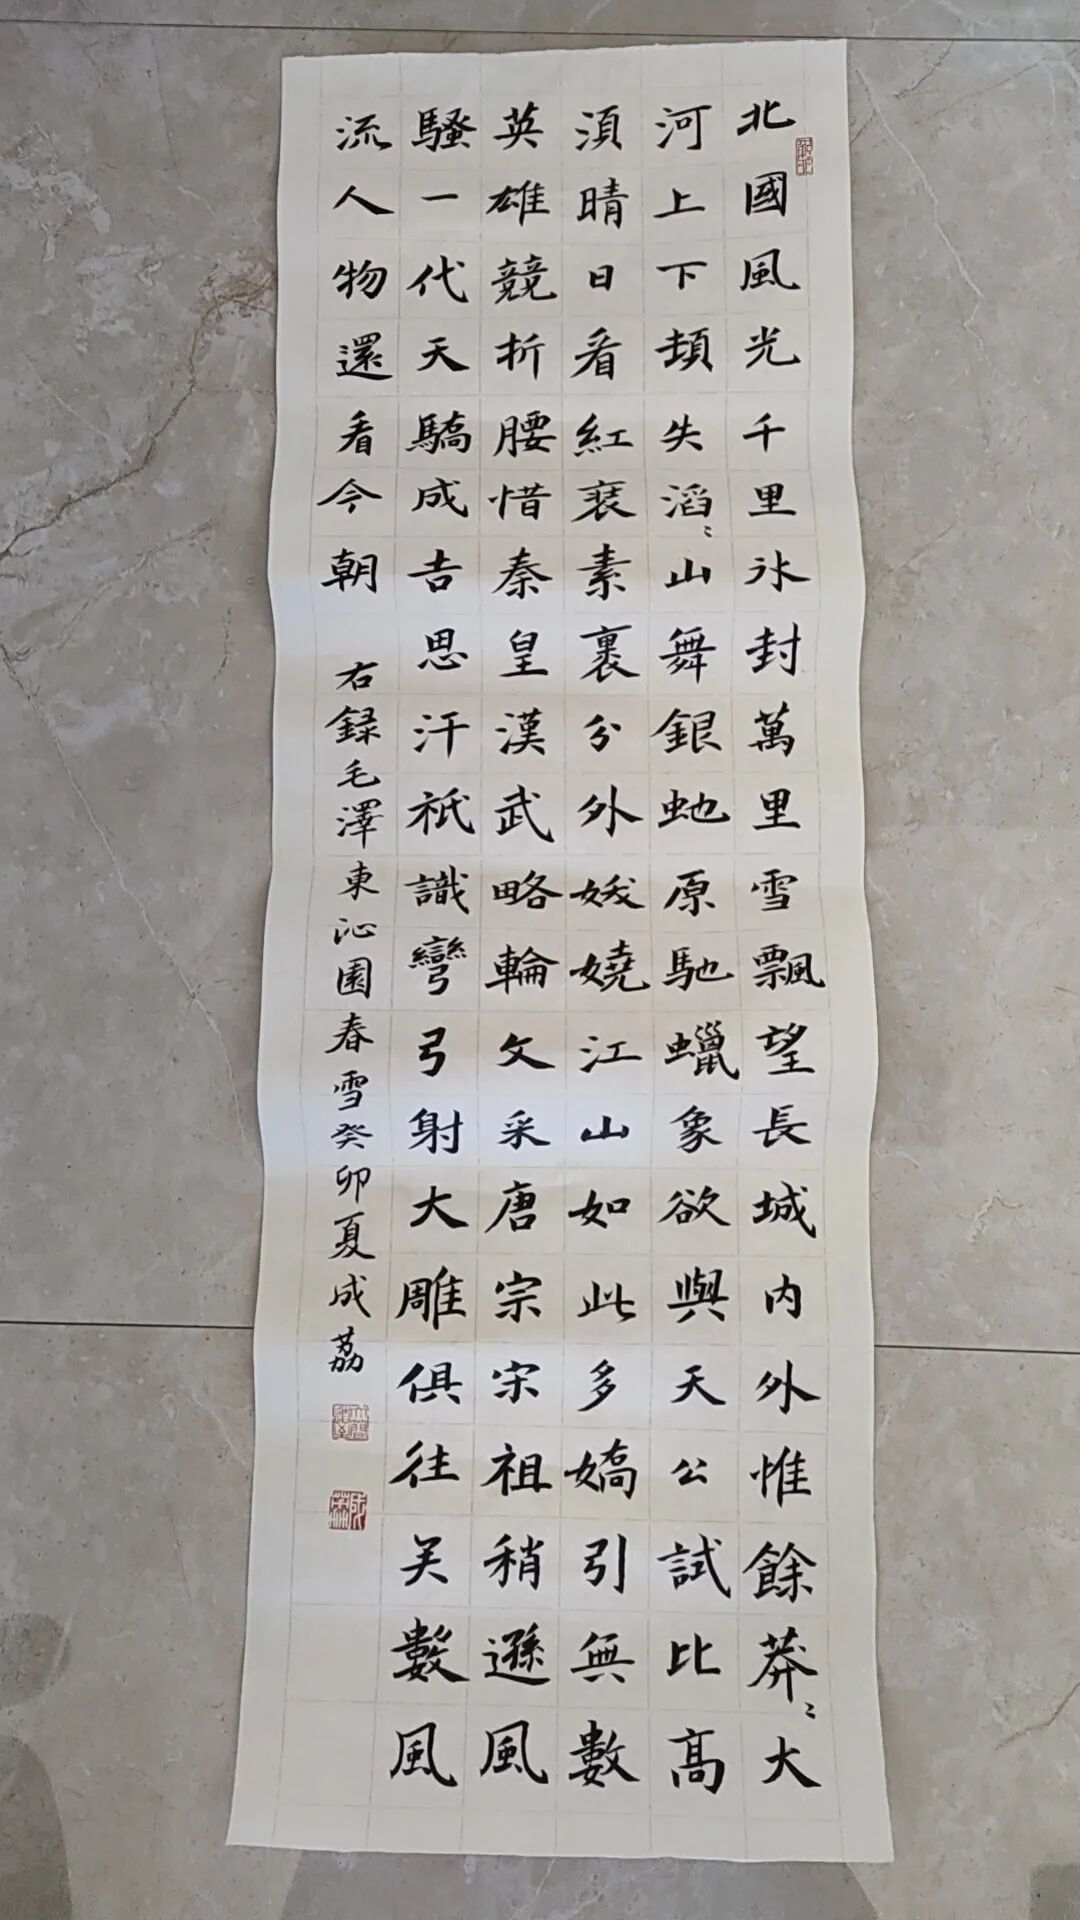 北國風光千里冰封萬里雪飄望長城内外惟餘莽〻大
河上下頓失滔〻山舞銀虵原馳蠟象欲與天公試比髙
湏晴日看紅裝素裹分外妖嬈江山如此多嬌引無數
英雄競折腰惜秦皇漢武略輸文采唐宗宋祖稍遜風
騷一代天驕成吉思汗祇識彎弓射大雕俱往矣數風
流人物還看今朝
右録毛澤東沁園春雪癸卯夏成荔